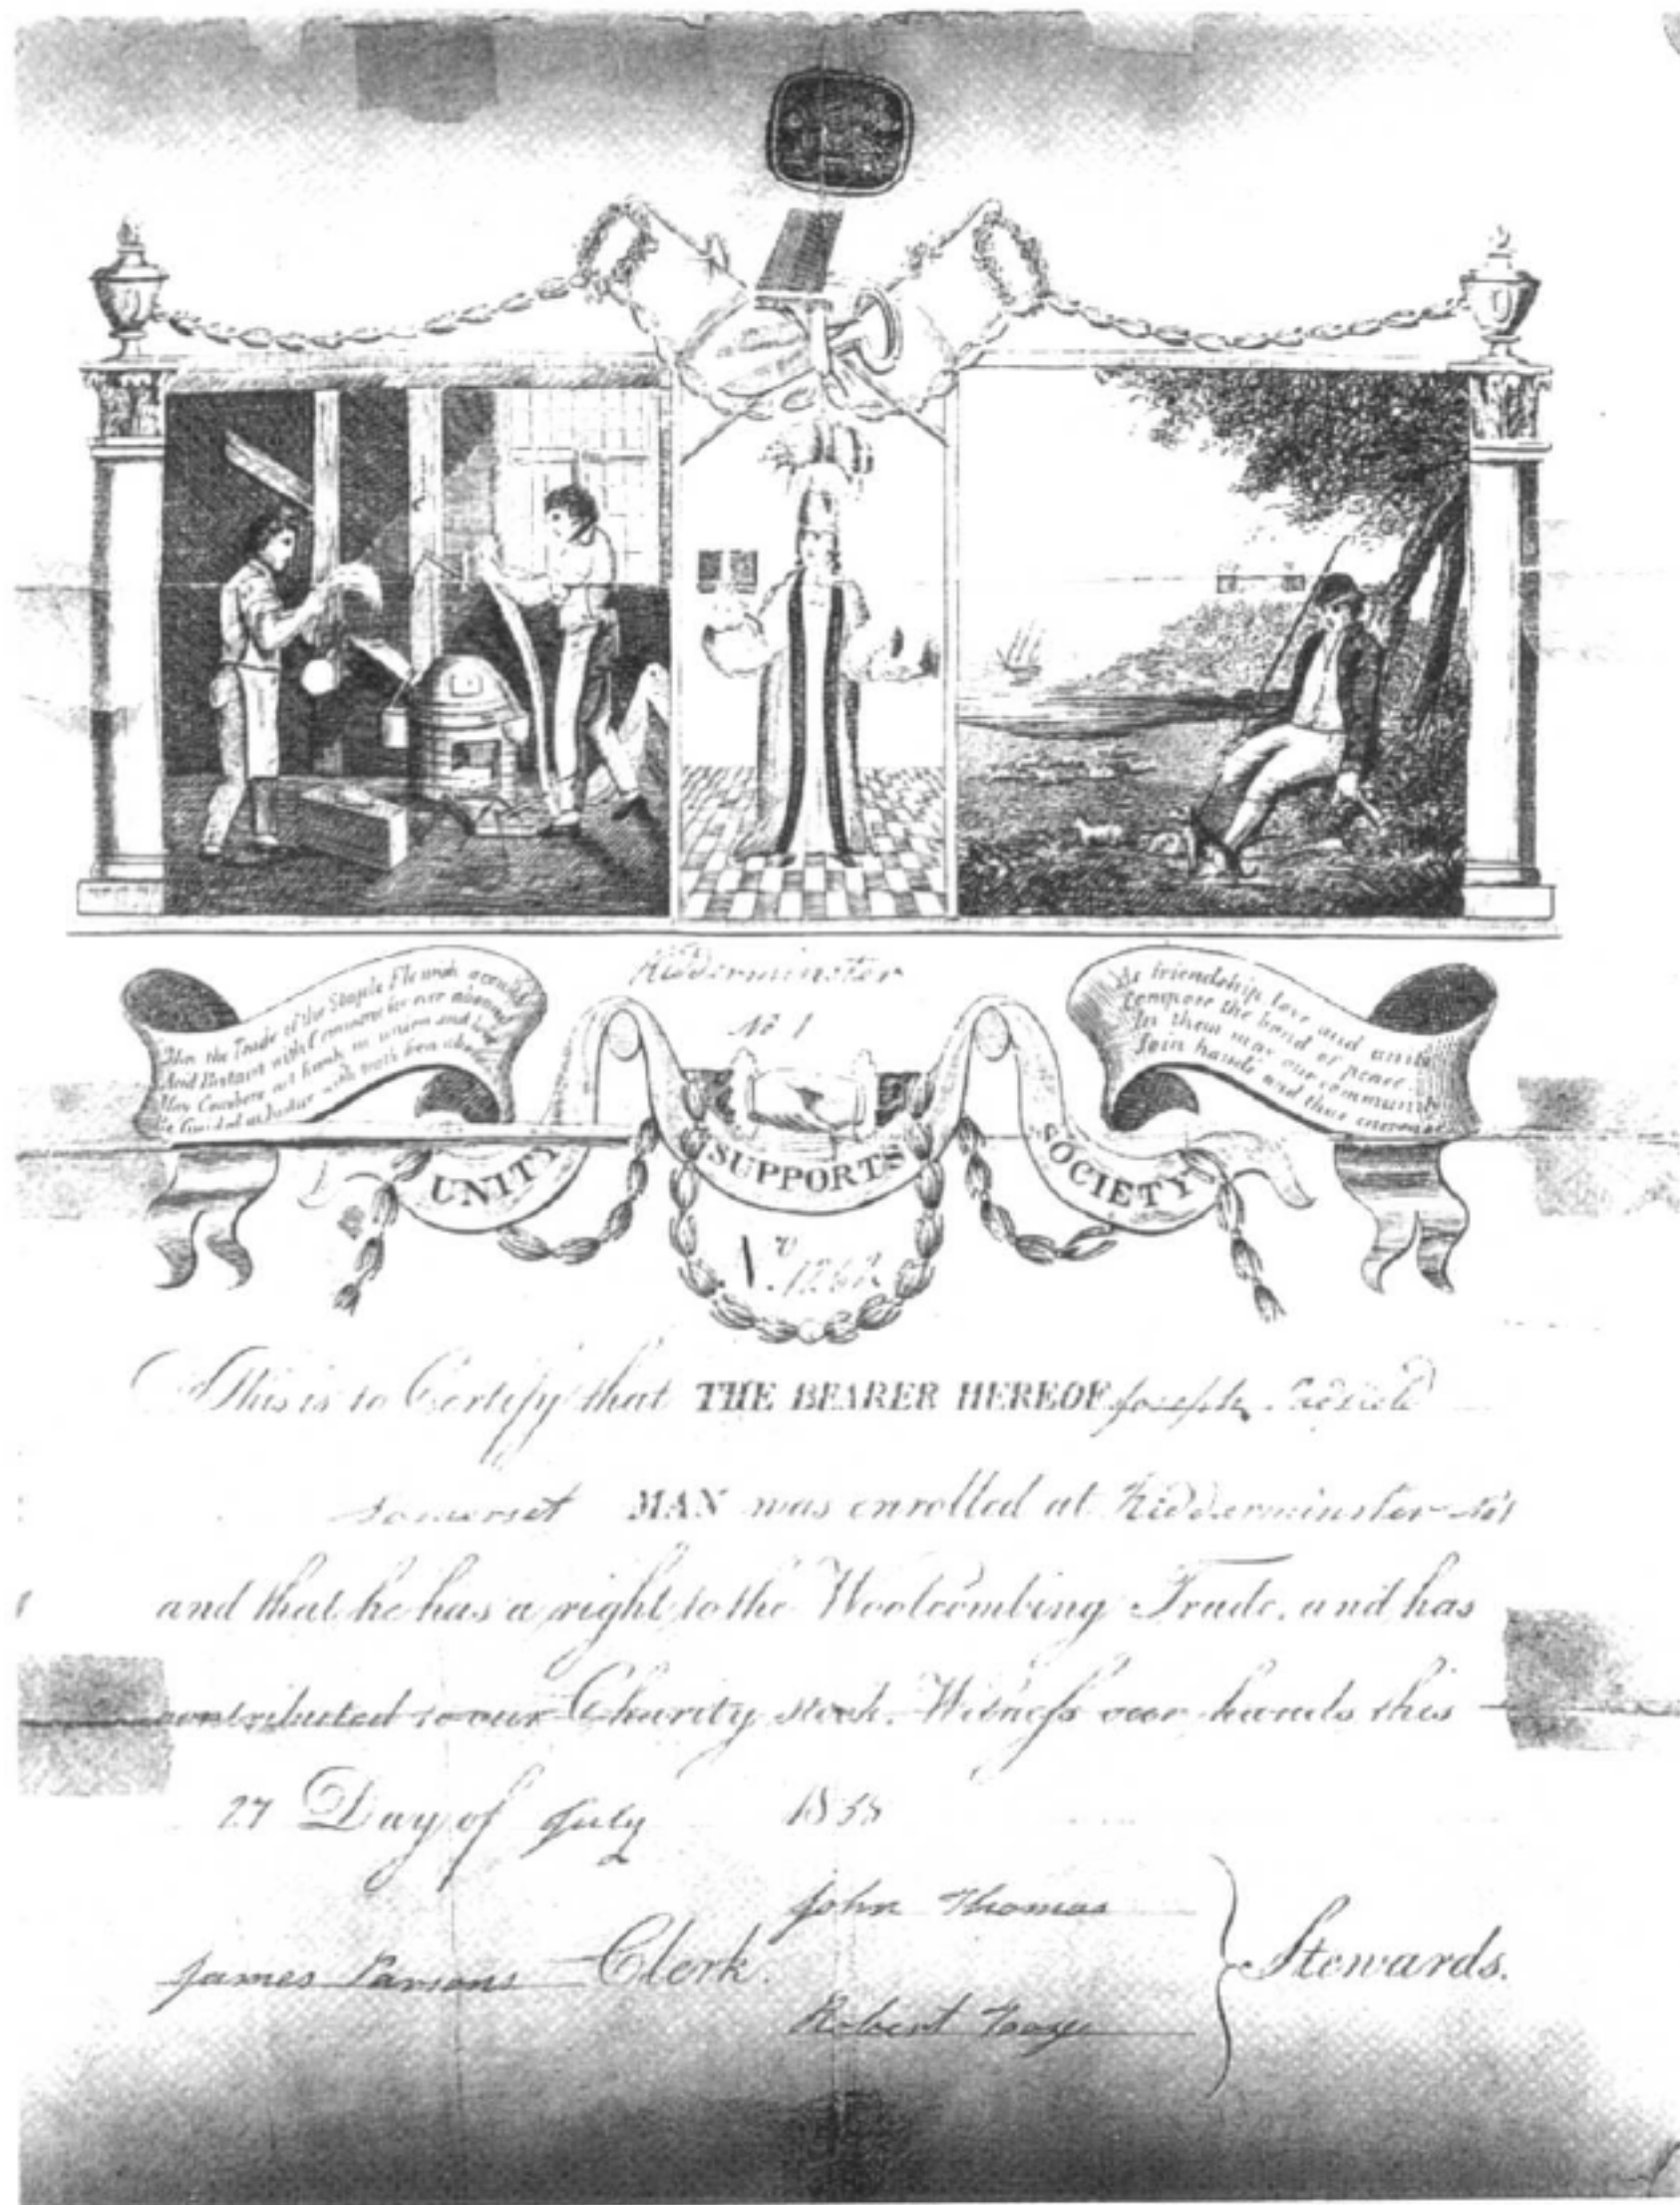 Kidderminster
No 1
May the Trade of the Staple Flourish around
And Britain with Commerce for ever abound
May Combers out hands in union and
Be Guided Justice with truth
As friendship love and unity
Compose the band of peace
In them may our community
Join hands and thus increase
UNITY SUPPORTS SOCIETY
No
This is to Certify that THE BEARER HEREOF Joseph
Somerset MAN was enrolled at Kidderminster No 1
and that he has a right to the Woolcombing Trade, and has
contributed to our Charity stock. Witness our hands this
27 Day of July 1838
John Thomas
James Parsons Clerk. Stewards.
Robert